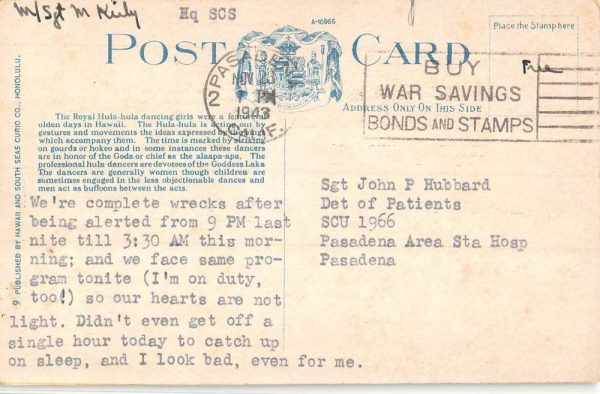 M/Sgt M Kiely Hq SCS
A-16966
Place the Stamp here
POST CARD
PASADENA
NOV 23
PM
1943
CALIF.
Free
BUY
WAR SAVINGS
BONDS AND STAMPS
ADDRESS ONLY ON THIS SIDE
9 PUBLISHED BY HAWAII AND SOUTH SEAS CURIO CO., HONOLULU.
The Royal Hula-hula dancing girls were a feature of
olden days in Hawaii. The Hula-hula is acting out by
gestures and movements the ideas expressed by the songs
which accompany them. The time is marked by striking
on gourds or hokeo and in some instances these dancers
are in honor of the Gods or chief as the alaapa-apa. The
professional hula dancers are devotees of the Goddess Laka
The dancers are generally women though children are
sometimes engaged in the less objectionable dances and
men act as buffoons between the acts.
We're complete wrecks after
being alerted from 9 PM last
nite till 3:30 AM this mor-
ning; and we face same pro-
gram tonite (I'm on duty,
too!) so our hearts are not
light. Didn't even get off a
single hour today to catch up
on sleep, and I look bad, even for me.
Sgt John P Hubbard
Det of Patients
SCU 1966
Pasadena Area Sta Hosp
Pasadena